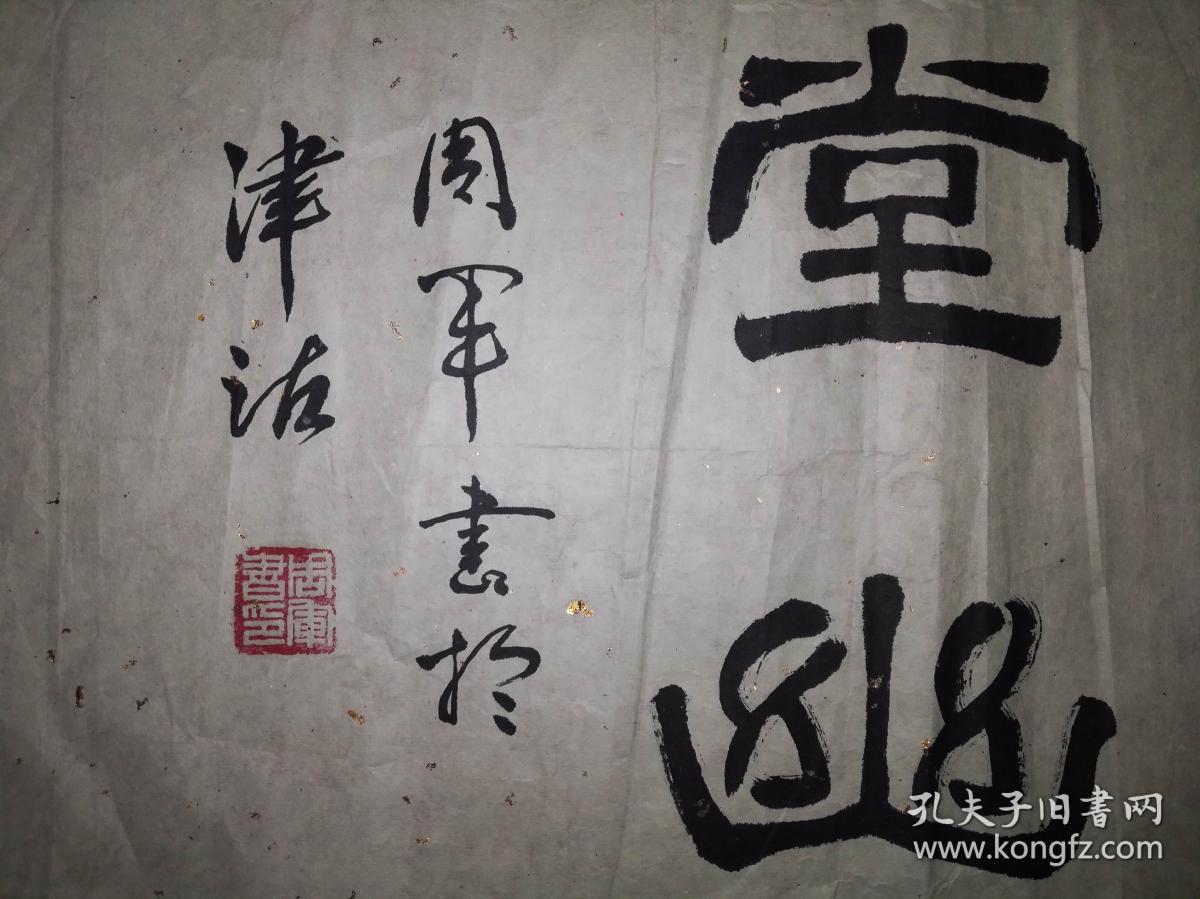 堂幽
周军書於
津沽
周軍書印
孔夫子旧書网
www.kongfz.com